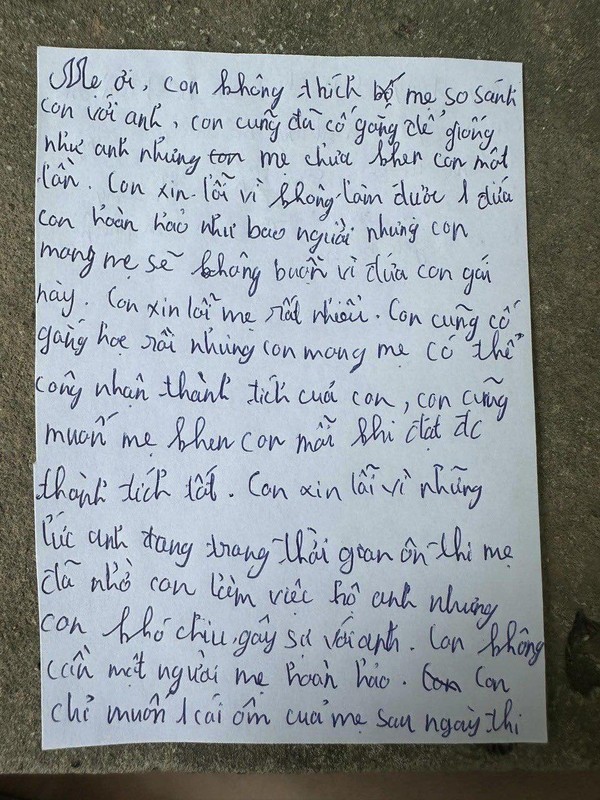 Mẹ ơi, con không thích bố mẹ so sánh
con với anh, con cũng đã cố gắng để giống
như anh nhưng con mẹ chưa khen con một
lần. Con xin lỗi vì không làm được 1 đứa
con hoàn hảo như bao người nhưng con
mong mẹ sẽ không buồn vì đứa con gái
này. Con xin lỗi mẹ rất nhiều. Con cũng cố
gắng học rồi nhưng con mong mẹ có thể
công nhận thành tích của con, con cũng
muốn mẹ khen con mỗi khi đạt đc
thành tích tốt. Con xin lỗi vì những
lúc anh đang trong thời gian ôn thi mẹ
đã nhờ con làm việc hộ anh nhưng
con khó chịu, gây sự với anh. Con không
cần một người mẹ hoàn hảo. Con Con
chỉ muốn 1 cái ôm của mẹ sau ngày thi